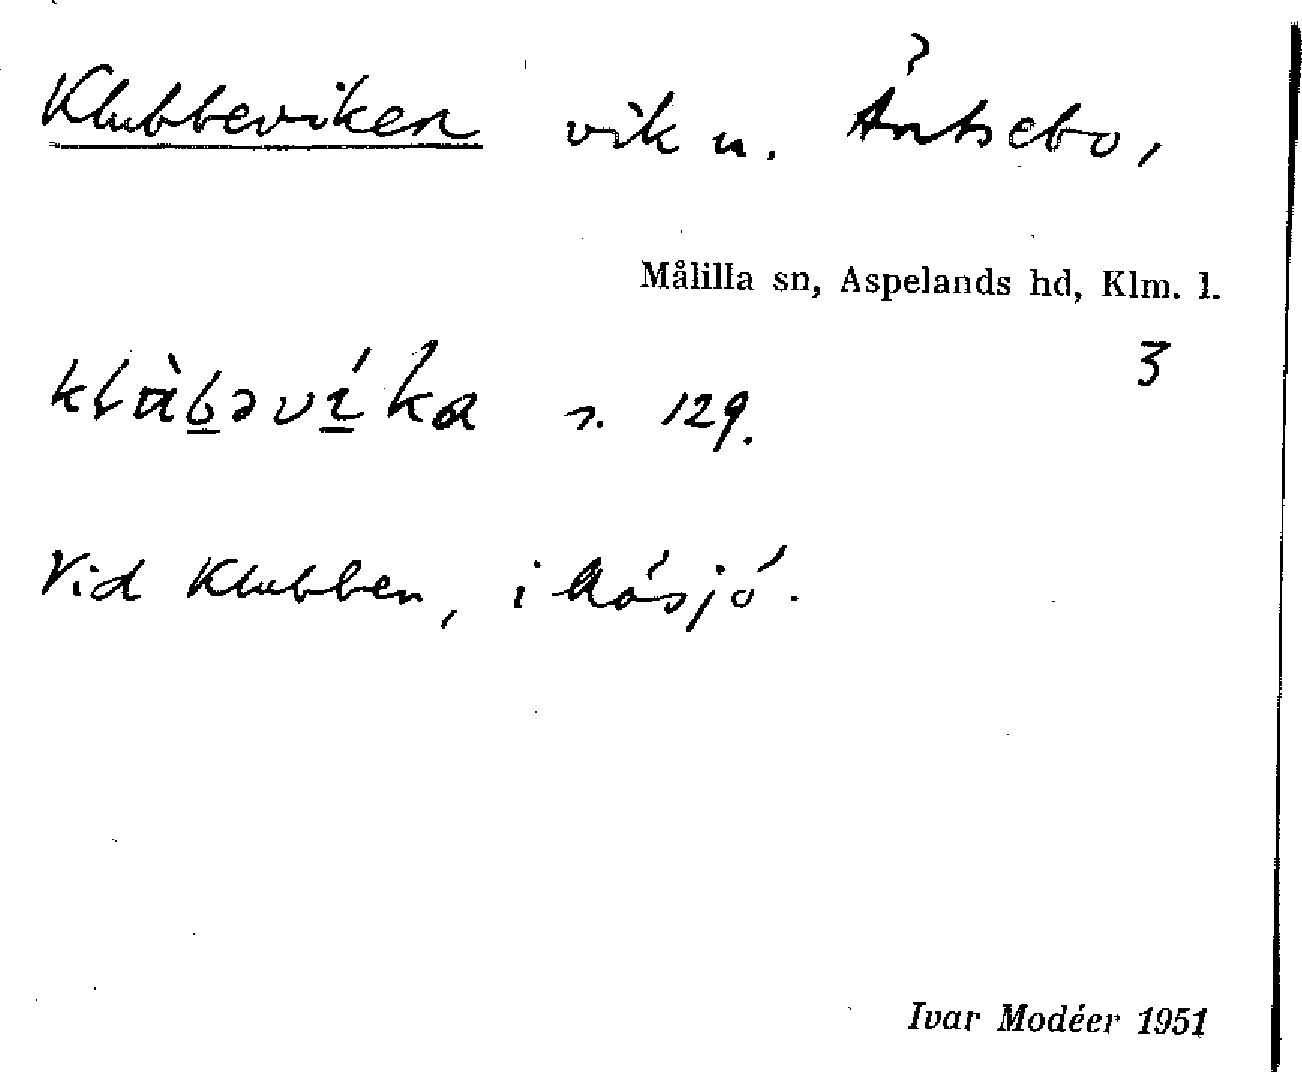 Klubbeviken vik u. Åntsebo,
Målilla sn, Aspelands hd, Klm. l.
3
s. 129.
Vid Klubben, i
Ivar Modéer 1951